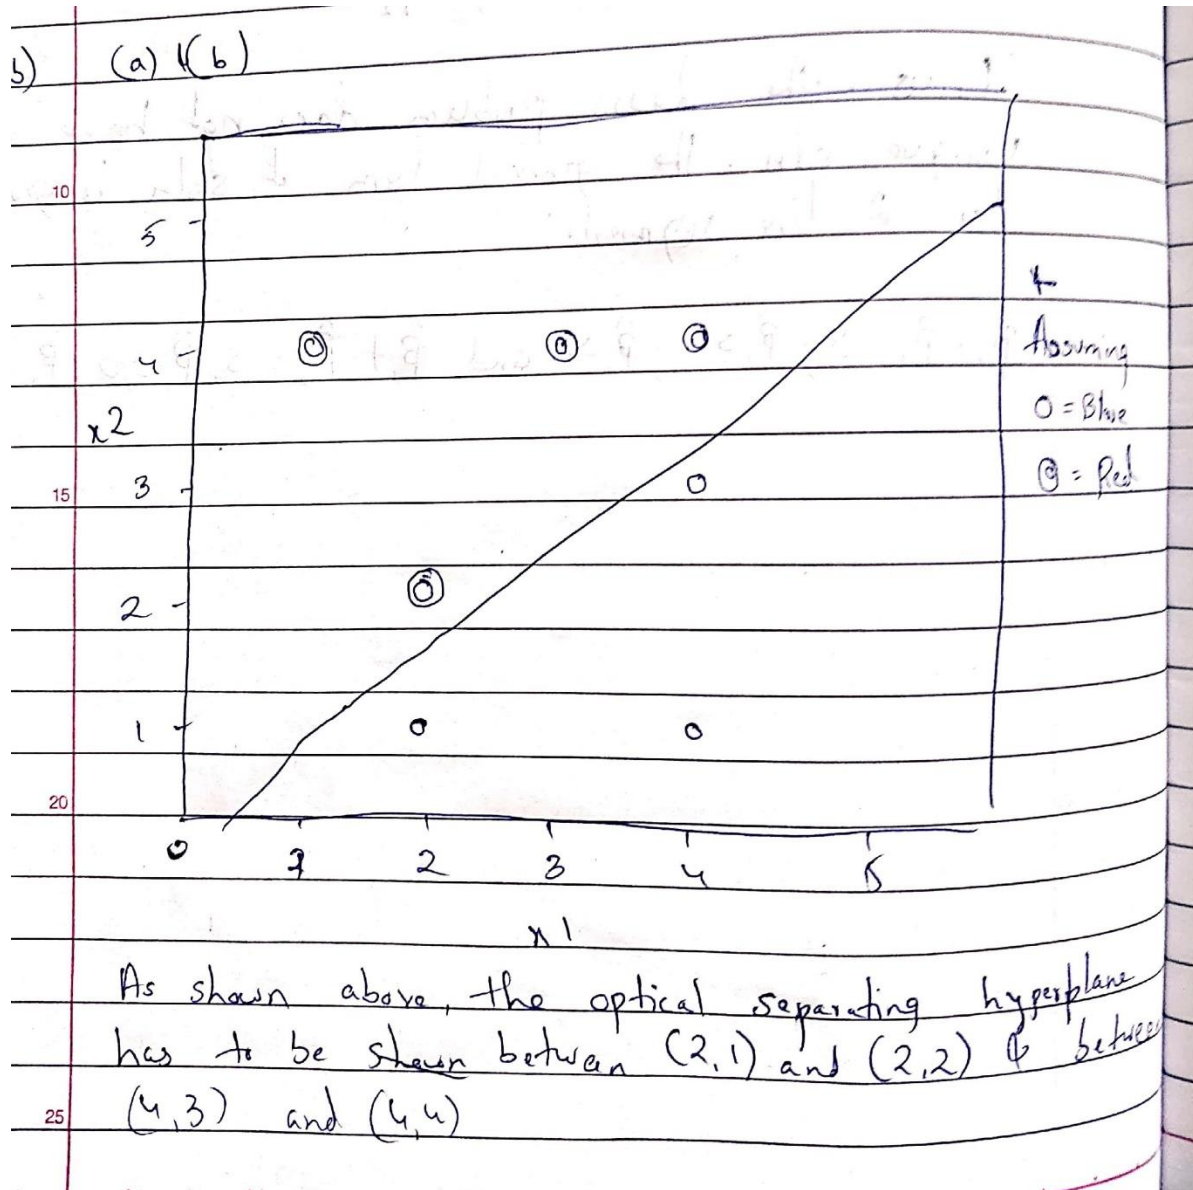 b) (a) & (b)
10
5
4
x2
3
15
2
1
20
0 1 2 3 4 5
x1
Assuming
O = Blue
◎ = Red
As shown above, the optical separating hyperplane
has to be shown between (2,1) and (2,2) & between
(4,3) and (4,4)
25